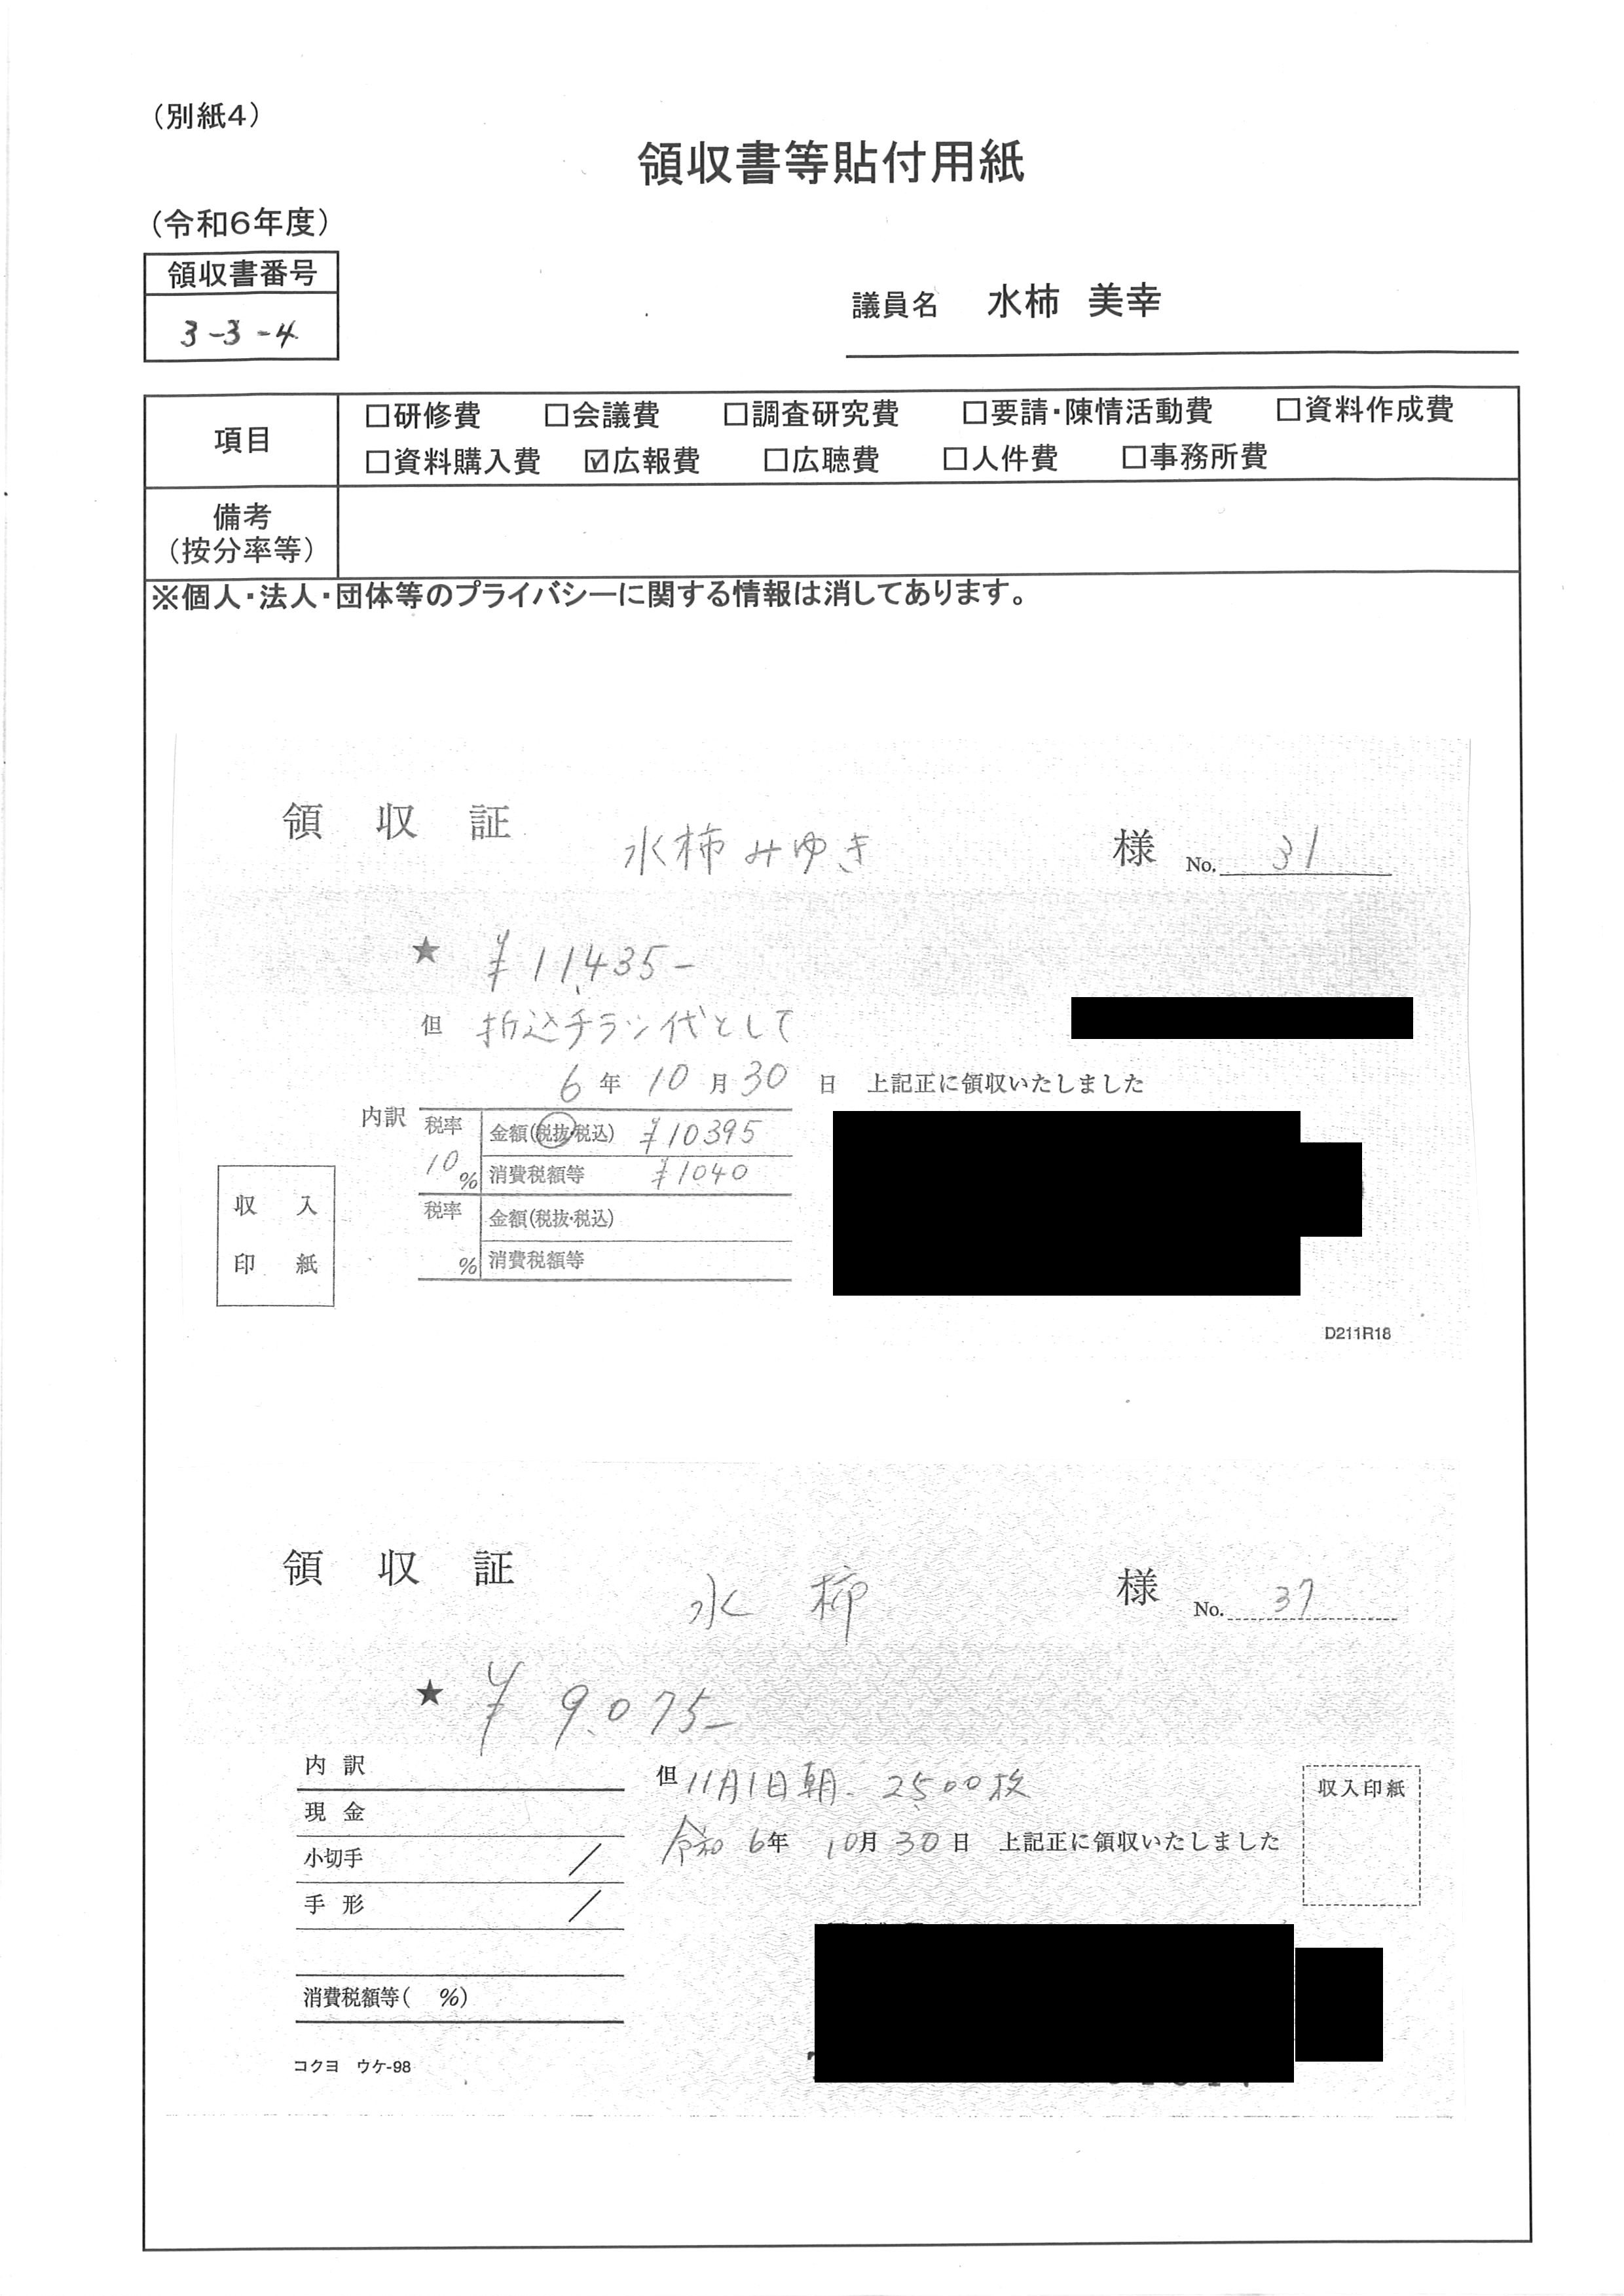 （別紙4）
領収書等貼付用紙
（令和6年度）
領収書番号
3-3-4
議員名 水柿 美幸
項目
□研修費 □会議費 □調査研究費 □要請・陳情活動費 □資料作成費
□資料購入費 ☑広報費 □広聴費 □人件費 □事務所費
備考
（按分率等）
※個人・法人・団体等のプライバシーに関する情報は消してあります。
領収証 水柿みゆき 様 No. 31
★ ¥11,435-
但 折込チラシ代として
6年10月30日 上記正に領収いたしました
内訳 税率 10% 金額(税抜・税込) ¥10395
消費税額等 ¥1040
税率 % 金額(税抜・税込)
消費税額等
収入
印紙
D211R18
領収証 水柿 様 No. 37
★ ¥9,075-
内訳
但 11月1日朝. 2,500枚
収入印紙
現金
令和6年10月30日 上記正に領収いたしました
小切手 /
手形 /
消費税額等( %)
コクヨ ウケ-98